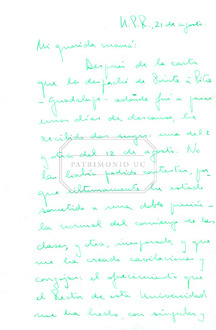 U.P.R., 21 de agosto.
Mi querida mamá:
Después de la carta
que les despaché de Pointe à Pitre
- Guadalupe - adonde fui a pasar
unos días de descanso, he
recibido dos suyas: una del 2
y otra del 12 de agosto. No
las había podido contestar, por
que últimamente he estado
sometido a una doble presión -
la normal del comienzo de las
clases, y otra, inesperada y que
me ha creado cavilaciones y
congojas: el ofrecimiento que
el Rector de esta Universidad
me ha hecho, con singular y
PATRIMONIO UC